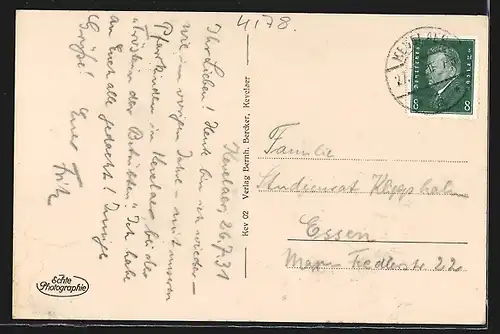 4178.
KEVELAER
Deutsches Reich
8 8
Kevelaer, 26.7.31
Ihr Lieben! Heute bin ich wieder –
wie im vorigen Jahre – mit unseren
Pfarrkindern in Kevelaer bei der
„Trösterin der Betrübten." Ich habe
an Euch alle gedacht! Innige
Grüße! Euer Fritz
Kev 02 Verlag Bernh. Bercker, Kevelaer
Familie
Studienrat
Essen
Max Fiedlerstr 22
Echte
Photographie